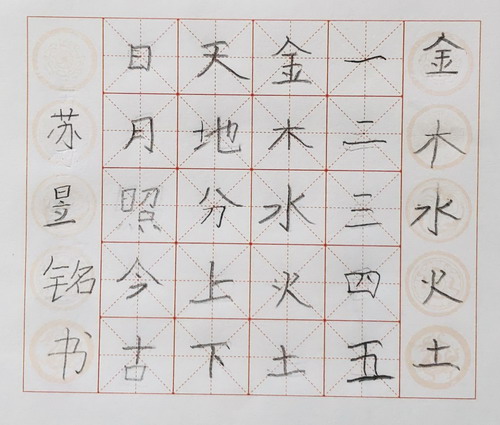 金木水火土
一二三四五
金木水火土
天地分上下
日月照今古
苏昱铭书